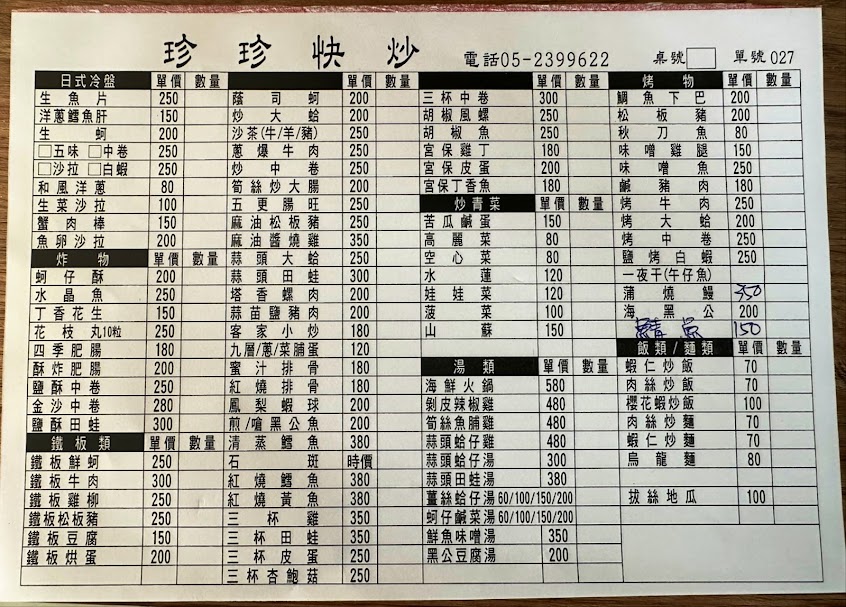 珍珍快炒 電話05-2399622 桌號 單號 027
日式冷盤 單價 數量
生魚片 250
洋蔥鱈魚肝 150
生蚵 200
□五味 □中卷 250
□沙拉 □白蝦 250
和風洋蔥 80
生菜沙拉 100
蟹肉棒 150
魚卵沙拉 200
炸物 單價 數量
蚵仔酥 200
水晶魚 250
丁香花生 150
花枝丸10粒 250
四季肥腸 180
酥炸肥腸 200
鹽酥中卷 250
金沙中卷 280
鹽酥田蛙 300
鐵板類 單價 數量
鐵板鮮蚵 250
鐵板牛肉 300
鐵板雞柳 250
鐵板松板豬 250
鐵板豆腐 150
鐵板烘蛋 200
單價 數量
蔭司蚵 200
炒大蛤 200
沙茶(牛/羊/豬) 200
蔥爆牛肉 250
炒中卷 250
筍絲炒大腸 200
五更腸旺 250
麻油松板豬 250
麻油醬燒雞 350
蒜頭大蛤 250
蒜頭田蛙 300
塔香螺肉 200
蒜苗鹽豬肉 200
客家小炒 180
九層/蔥/菜脯蛋 120
蜜汁排骨 180
紅燒排骨 180
鳳梨蝦球 200
煎/嗆黑公魚 200
清蒸鱈魚 380
石斑 時價
紅燒鱈魚 380
紅燒黃魚 380
三杯雞 350
三杯田蛙 350
三杯皮蛋 250
三杯杏鮑菇 250
單價 數量
三杯中卷 300
胡椒風螺 250
胡椒魚 250
宮保雞丁 180
宮保皮蛋 200
宮保丁香魚 180
炒青菜 單價 數量
苦瓜鹹蛋 150
高麗菜 80
空心菜 80
水蓮 120
娃娃菜 120
菠菜 100
山蘇 150
湯類 單價 數量
海鮮火鍋 580
剝皮辣椒雞 480
筍絲魚脯雞 480
蒜頭蛤仔雞 480
蒜頭蛤仔湯 300
蒜頭田蛙湯 380
薑絲蛤仔湯 60/100/150/200
蚵仔鹹菜湯 60/100/150/200
鮮魚味噌湯 350
黑公豆腐湯 200
烤物 單價 數量
鯛魚下巴 200
松板豬 200
秋刀魚 80
味噌雞腿 150
味噌魚 250
鹹豬肉 180
烤牛肉 250
烤大蛤 200
烤中卷 250
鹽烤白蝦 250
一夜干(午仔魚)
蒲燒鰻 350
海黑公 200
鯖魚 150
飯類/麵類 單價 數量
蝦仁炒飯 70
肉絲炒飯 70
櫻花蝦炒飯 100
肉絲炒麵 70
蝦仁炒麵 70
烏龍麵 80
拔絲地瓜 100